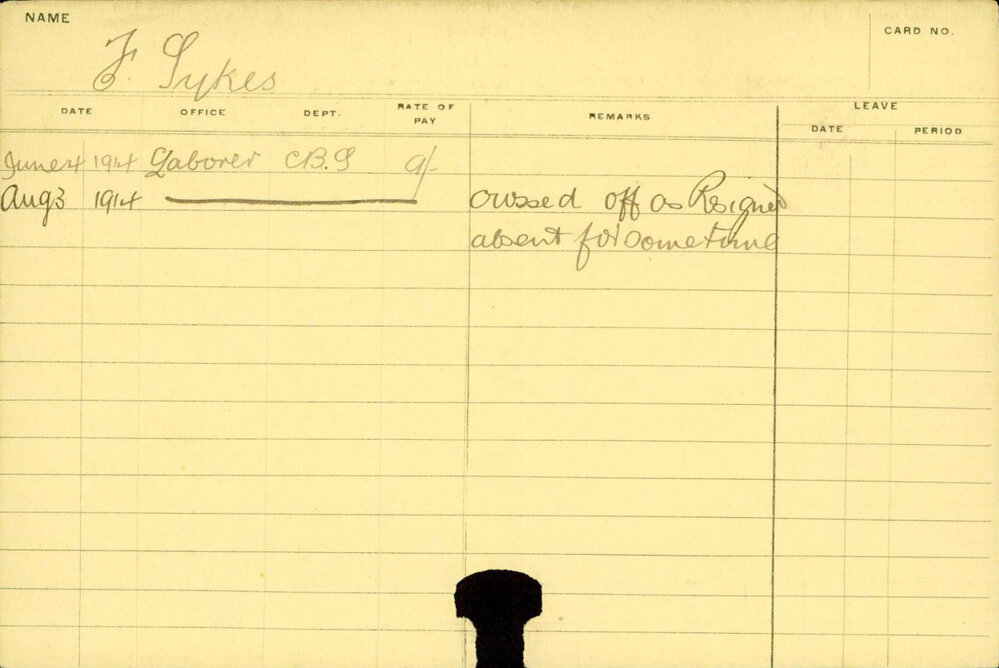 NAME
CARD NO.
F. Sykes
DATE OFFICE DEPT. RATE OF PAY REMARKS LEAVE
DATE PERIOD
June 4 1914 Laborer C.B.S 9/-
Aug 3 1914 crossed off as Resigned
absent for sometime